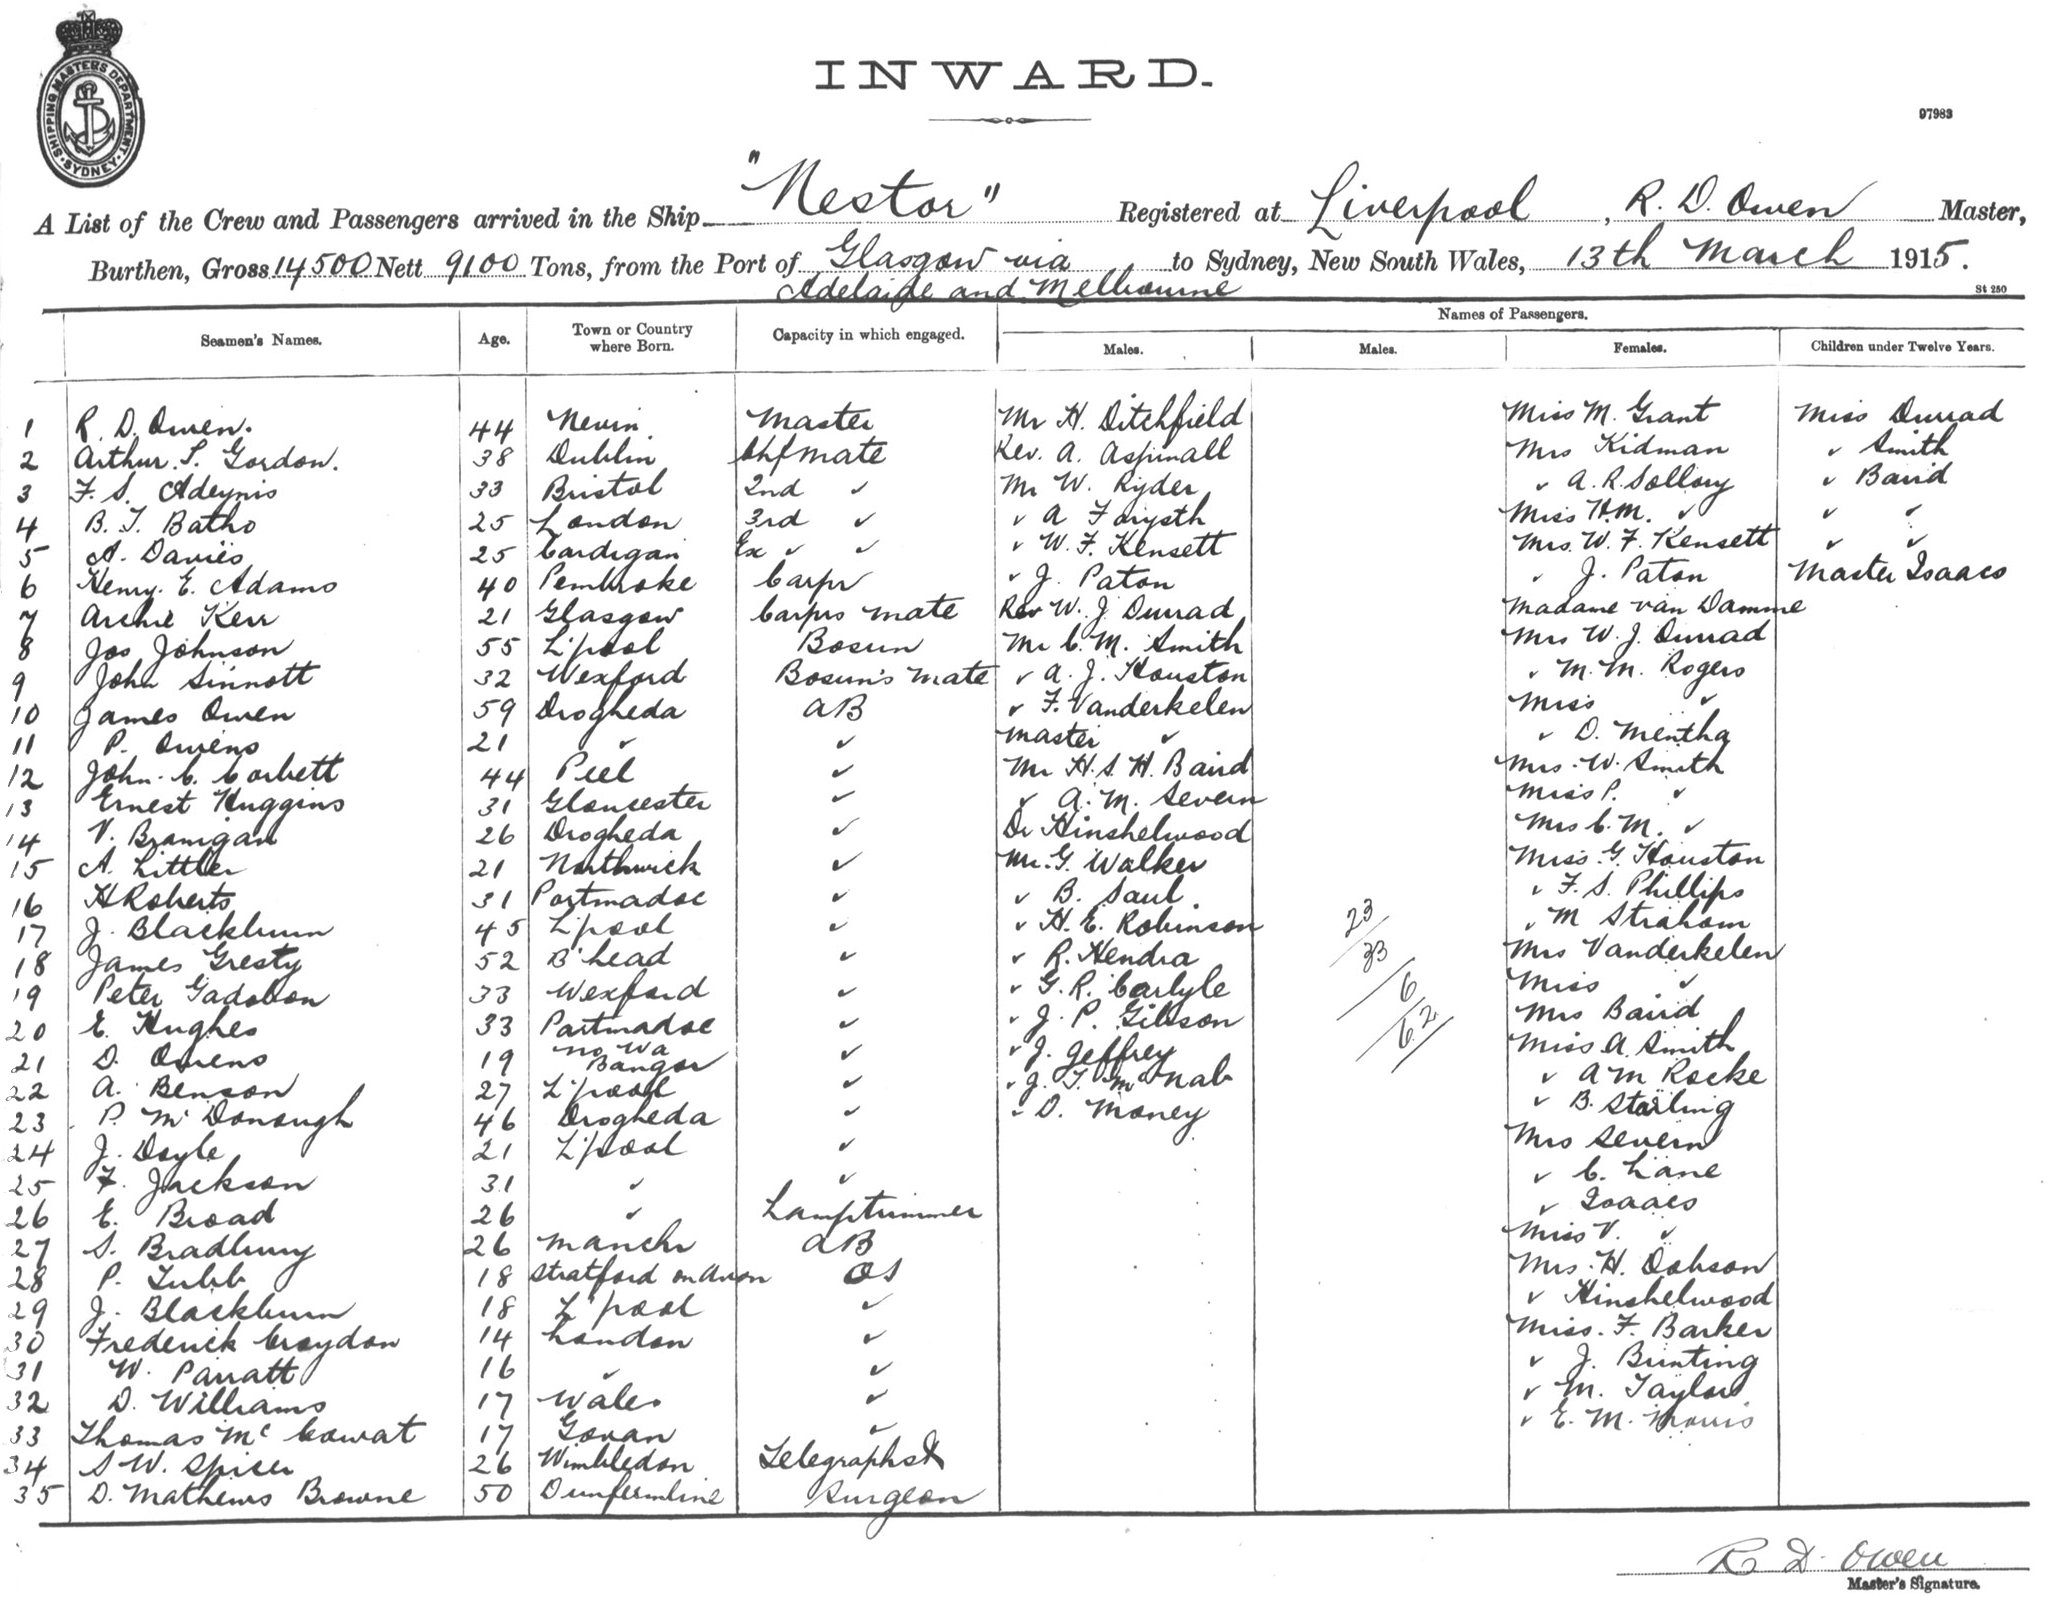 SHIPPING MASTERS DEPARTMENT
SYDNEY
INWARD.
97983
A List of the Crew and Passengers arrived in the Ship "Nestor" Registered at Liverpool, R. D. Owen Master,
Burthen, Gross 14500 Nett 9100 Tons, from the Port of Glasgow via to Sydney, New South Wales, 13th March 1915.
Adelaide and Melbourne
St 250
Names of Passengers.
Seamen's Names. Age. Town or Country where Born. Capacity in which engaged. Males. Males. Females. Children under Twelve Years.
1 R. D. Owen. 44 Nevin. Master Mr H. Ditchfield Miss M. Grant Miss Durrad
2 Arthur. S. Gordon. 38 Dublin Chf Mate Rev. A. Aspinall Mrs Kidman " Smith
3 F. S. Adeynis 33 Bristol 2nd " Mr W. Ryder " A. R. Sollory " Baird
4 B. T. Batho 25 London 3rd " " A Forysth Miss H.M. " " "
5 A. Davies 25 Cardigan Ex " " " W. F. Kensett Mrs. W. F. Kensett " "
6 Henry. E. Adams 40 Pembroke Carpr " J. Paton " J. Paton Master Isaacs
7 Archie Kerr 21 Glasgow Carprs Mate Rev W. J. Durrad Madame van Damme
8 Jos Johnson 55 L'pool Bosun Mr C. M. Smith Mrs W. J. Durrad
9 John Sinnott 32 Wexford Bosun's Mate " A. J. Houston " M. M. Rogers
10 James Owen 59 Drogheda AB " F. Vanderkelen Miss "
11 P. Owens 21 " " Master " " D. Mentha
12 John. C. Corbett 44 Peel " Mr H. S. H. Baird Mrs. W. Smith
13 Ernest Huggins 31 Gloucester " " A. M. Severn Miss P. "
14 V. Branigan 26 Drogheda " Dr Hinshelwood Mrs C. M. "
15 A. Littler 21 Northwick " Mr. G. Walker Miss. G. Houston
16 H Roberts 31 Portmadoc " " B. Saul. " F. S. Phillips
17 J. Blackburn 45 L'pool " " H. E. Robinson 23 " M Straham
18 James Gresty 52 B'head " " R. Hendra 33 Mrs Vanderkelen
19 Peter Gadobon 33 Wexford " " G. R. Carlyle 6 Miss "
20 E. Hughes 33 Portmadoc " " J. P. Gibson 62 Mrs Baird
21 D. Owens 19 No. Wa Bangor " " J. Jeffrey Miss A. Smith
22 A. Benson 27 L'pool " " J. T. McNab " A M Rocke
23 P. McDonough 46 Drogheda " " D. Money " B. Starling
24 J. Doyle 21 L'pool " Mrs Severn
25 F. Jackson 31 " " " C. Lane
26 E. Broad 26 " Lamptrimmer " Isaacs
27 S. Bradbury 26 Manchr AB Miss V. "
28 P. Tubb 18 Stratford on Avon OS Mrs. H. Dobson
29 J. Blackburn 18 L'pool " " Hinshelwood
30 Frederick Croydon 14 London " Miss. F. Barker
31 W. Parratt 16 " " " J. Bunting
32 D. Williams 17 Wales " " M. Taylor
33 Thomas Mc Cowat 17 Govan " " E. M. Morris
34 S W. Spicer 26 Wimbledon Telegraphst
35 D. Mathews Browne 50 Dunfermline Surgeon
R D. Owen
Master's Signature.